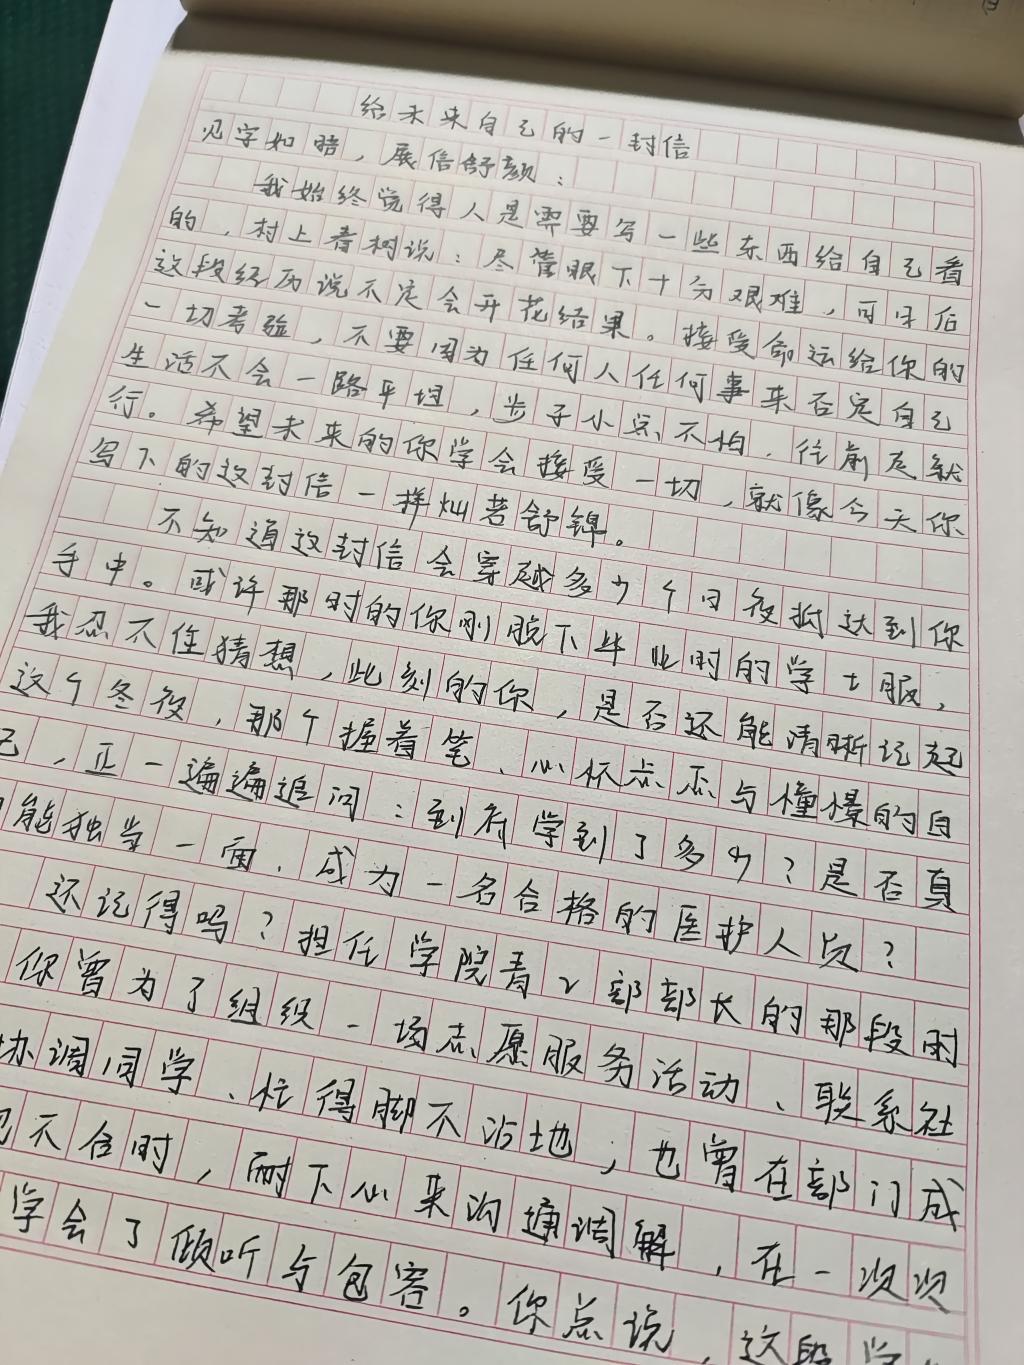 给未来自己的一封信
见字如晤，展信舒颜：
我始终觉得人是需要写一些东西给自己看
的，村上春树说：尽管眼下十分艰难，可日后
这段经历说不定会开花结果。接受命运给你的
一切考验，不要因为任何人任何事来否定自己
生活不会一路平坦，步子小点不怕，往前走就
行。希望未来的你学会接受一切，就像今天你
写下的这封信一样灿若舒锦。
不知道这封信会穿越多少个日夜抵达到你
手中。或许那时的你刚脱下毕业时的学士服，
我忍不住猜想，此刻的你，是否还能清晰记起
这个冬夜，那个握着笔、心怀忐忑与憧憬的自
己，正一遍遍追问：到底学到了多少？是否真
能独当一面，成为一名合格的医护人员？
还记得吗？担任学院青工部部长的那段时
你曾为了组织一场志愿服务活动、联系社
协调同学、忙得脚不沾地，也曾在部门成
见不合时，耐下心来沟通调解，在一次次
学会了倾听与包容。你总说，这段学